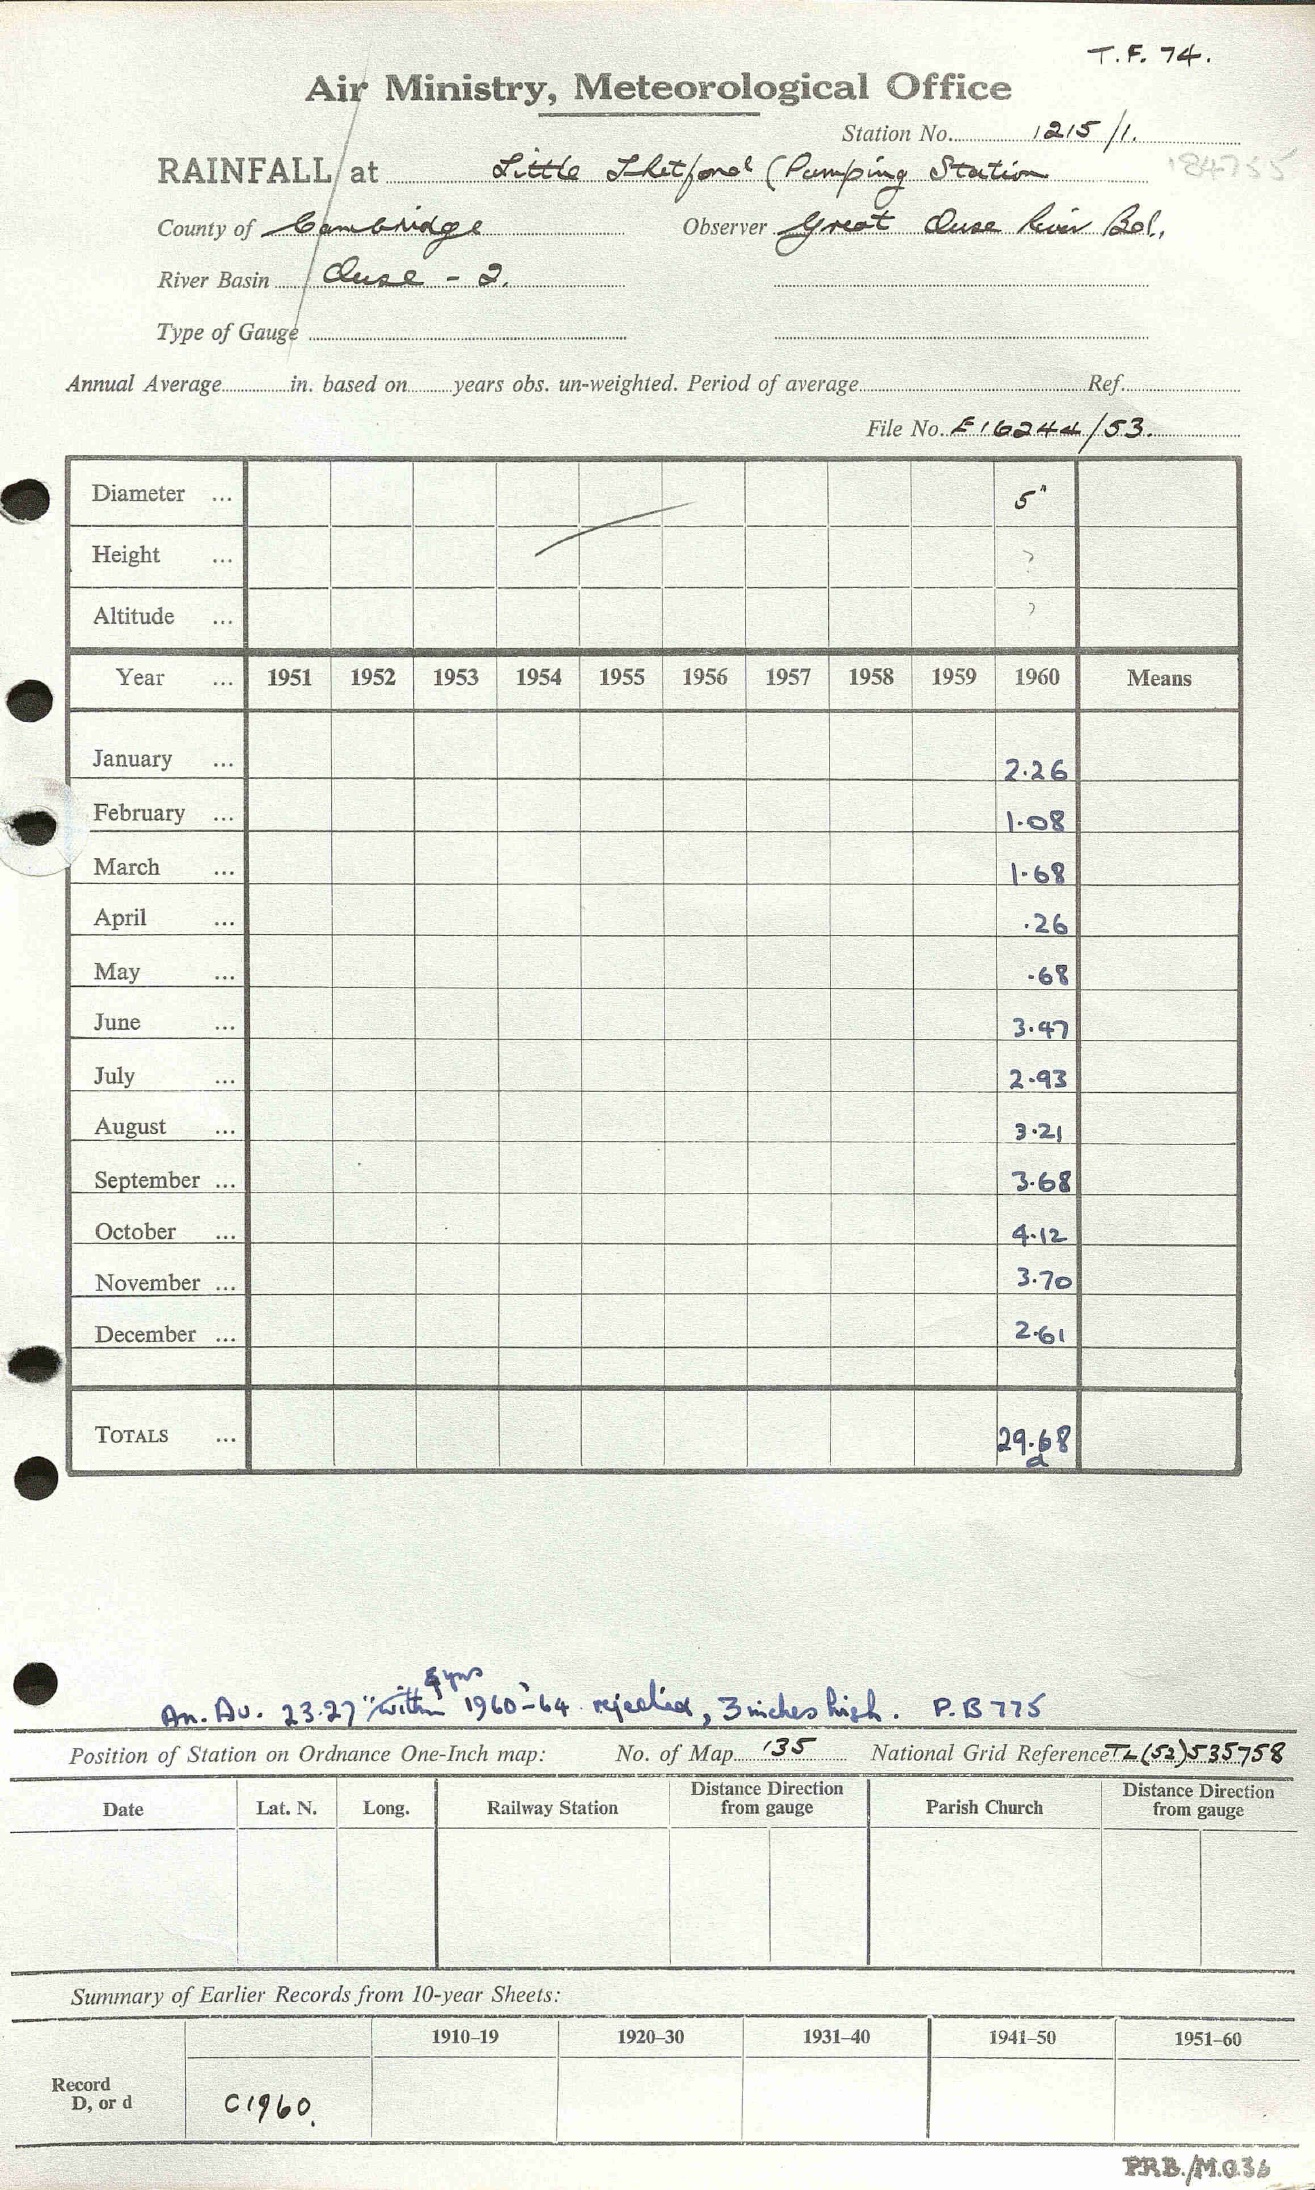 T.F. 74.
Air Ministry, Meteorological Office
Station No. 1215/1.
RAINFALL at Little Thetford (Pumping Station 184755
County of Cambridge Observer Great Ouse River Bd.,
River Basin Ouse - 2.
Type of Gauge
Annual Average in. based on years obs. un-weighted. Period of average Ref.
File No. E16244/53.
Diameter ... 5"
Height ... ?
Altitude ... ?
Year ... 1951 1952 1953 1954 1955 1956 1957 1958 1959 1960 Means
January ... 2.26
February ... 1.08
March ... 1.68
April ... .26
May ... .68
June ... 3.47
July ... 2.93
August ... 3.21
September ... 3.68
October ... 4.12
November ... 3.70
December ... 2.61
TOTALS ... 29.68
d
yrs
An. Av. 23.27" with 1960-64 rejected, 3 inches high. P.B 775
Position of Station on Ordnance One-Inch map: No. of Map 135 National Grid Reference TL(52)535758
Date Lat. N. Long. Railway Station Distance Direction from gauge Parish Church Distance Direction from gauge
Summary of Earlier Records from 10-year Sheets:
1910–19 1920–30 1931–40 1941–50 1951–60
Record D, or d C1960.
PRB./M.O.36